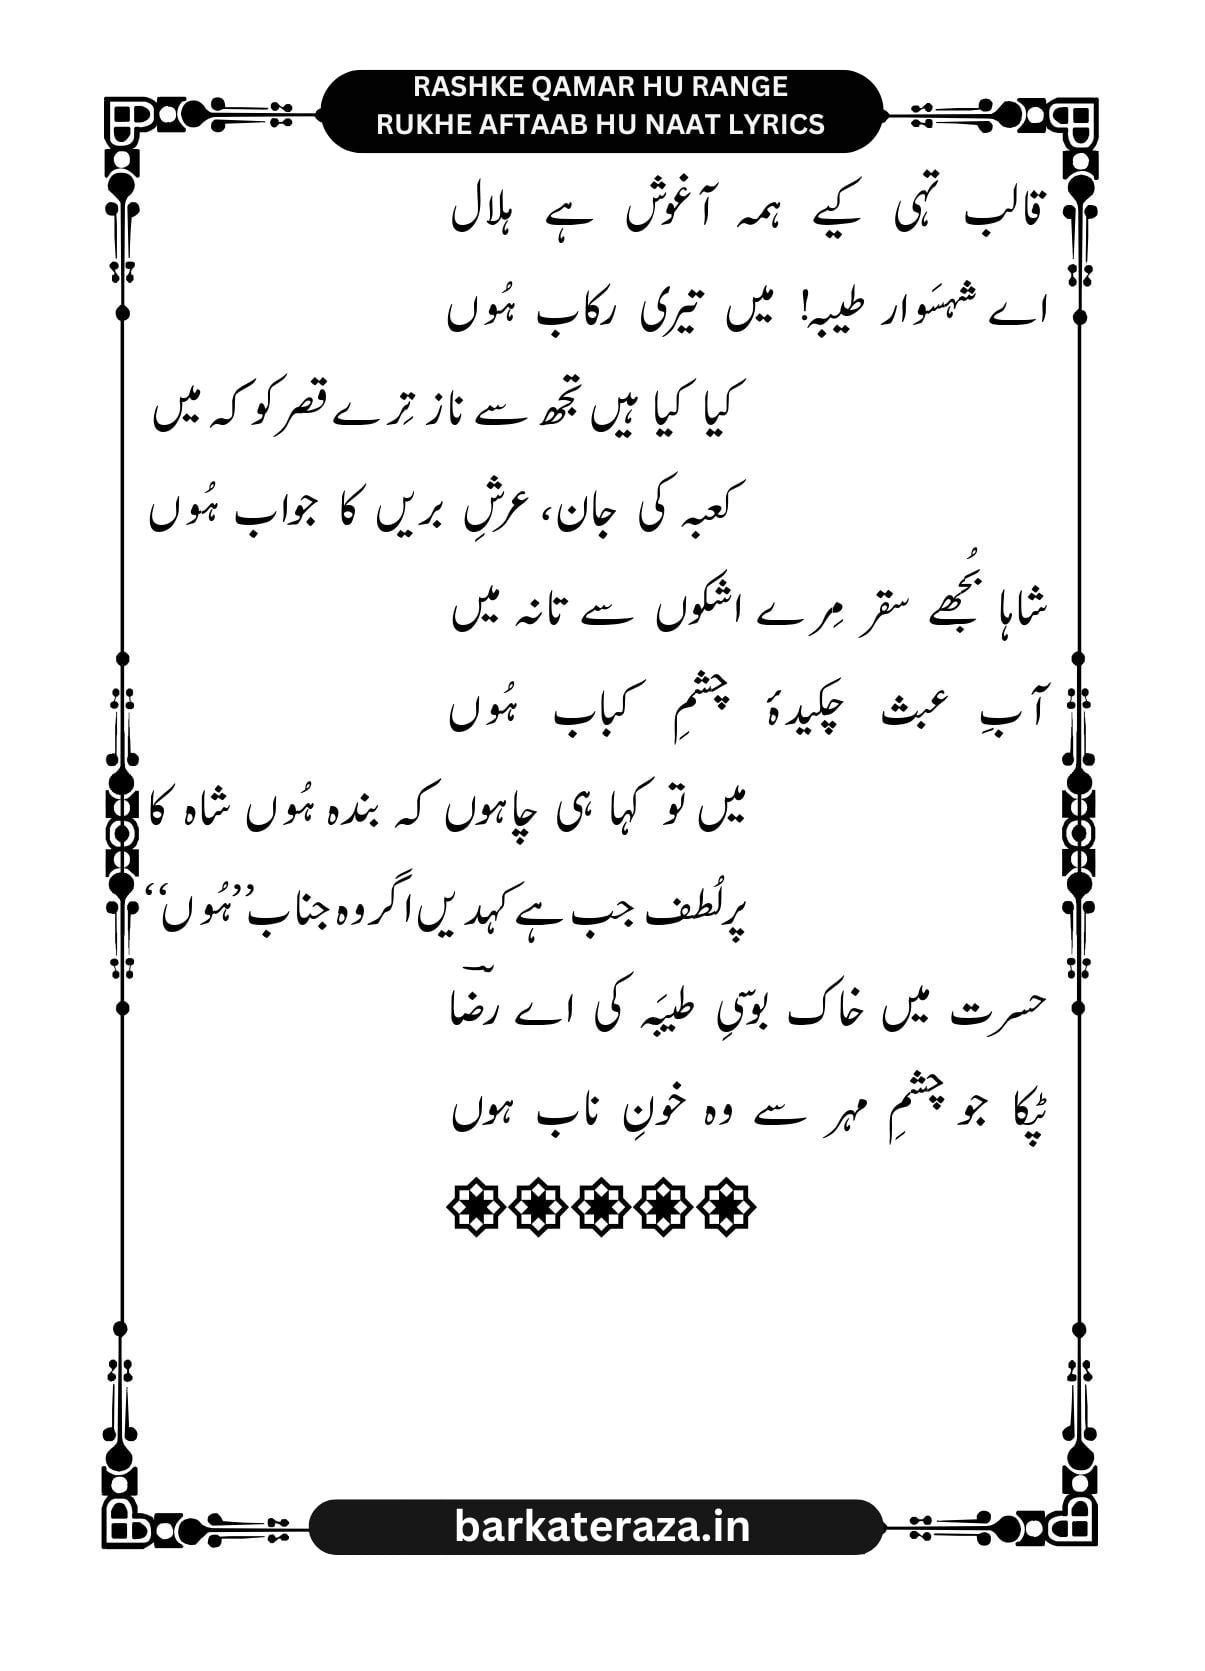 RASHKE QAMAR HU RANGE
RUKHE AFTAAB HU NAAT LYRICS
قالب تہی کیے ہمہ آغوش ہے ہلال
اے شہسَوار طیبہ! میں تیری رکاب ہُوں
کیا کیا ہیں تجھ سے ناز تِرے قصر کو کہ میں
کعبہ کی جان، عرشِ بریں کا جواب ہُوں
شاہا بُجھے سقر مِرے اشکوں سے تانہ میں
آبِ عبث چکیدۂ چشمِ کباب ہُوں
میں تو کہا ہی چاہوں کہ بندہ ہُوں شاہ کا
پر لُطف جب ہے کہدیں اگر وہ جناب ’’ہُوں‘‘
حسرت میں خاک بوسیِ طیبَہ کی اے رضؔا
ٹپکا جو چشمِ مہر سے وہ خونِ ناب ہوں
barkateraza.in